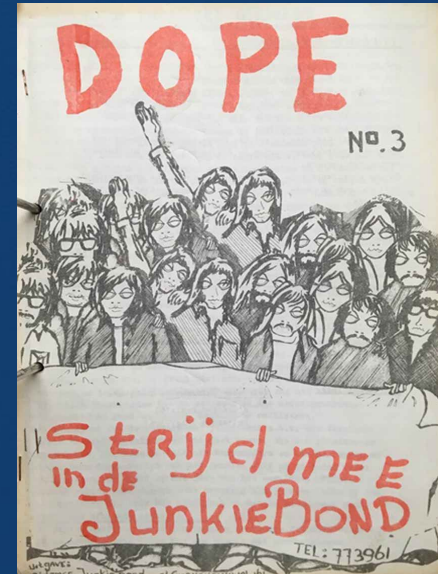 DOPE
No. 3
Strijd mee
in de
JunkieBond
TEL: 773961
uitgave: